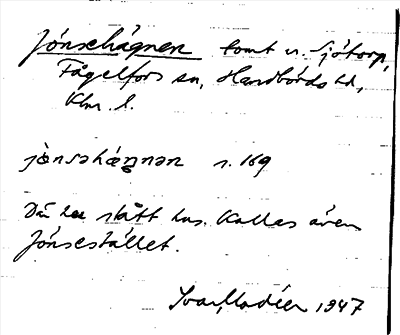 Jónsehägnen tomt u. Sjötorp,
Fågelfors sn, Handbörds hd,
Klm. l.
jònsəhæŋnən s. 169
Där har stått hus. Kallas även
Jónsestället.
Ivar Modéer 1947